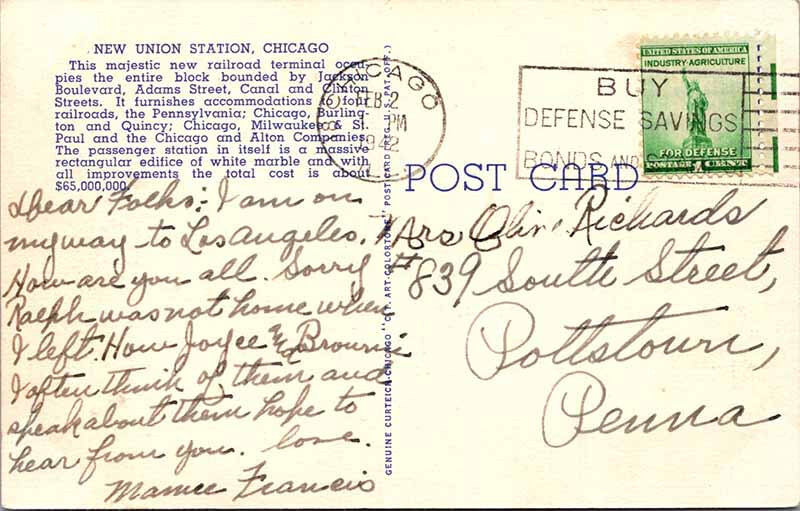 NEW UNION STATION, CHICAGO
This majestic new railroad terminal occu-
pies the entire block bounded by Jackson
Boulevard, Adams Street, Canal and Clinton
Streets. It furnishes accommodations for
railroads, the Pennsylvania; Chicago, Burling-
ton and Quincy; Chicago, Milwaukee & St.
Paul and the Chicago and Alton Companies.
The passenger station in itself is a massive
rectangular edifice of white marble and with
all improvements the total cost is about
$65,000,000.
Dear Folks: I am on
my way to Los Angeles.
How are you all. Sorry
Ralph was not home when
I left. How Joyce & Brownie
I often think of them and
speak about them hope to
hear from you. love.
Mamee Francis
GENUINE CURTEICH-CHICAGO "C.T. ART-COLORTONE" POSTCARD (REG. U.S. PAT. OFF.)
CHICAGO
FEB 2
PM
1942
BUY
DEFENSE SAVINGS
BONDS AND
UNITED STATES OF AMERICA
INDUSTRY·AGRICULTURE
FOR DEFENSE
POSTAGE 1 CENTS
POST CARD
Mrs Olin Richards
#839 South Street,
Pottstown,
Penna